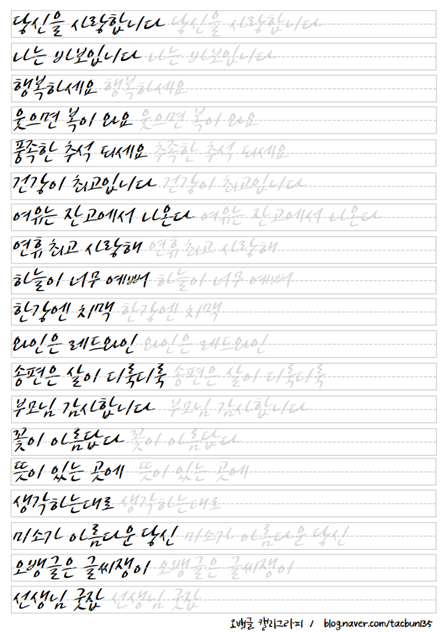 당신을 사랑합니다 당신을 사랑합니다
나는 바보입니다 나는 바보입니다
행복하세요 행복하세요
웃으면 복이 와요 웃으면 복이 와요
풍족한 추석 되세요 추족한 추석 되세요
건강이 최고입니다 건강이 최고입니다
여유는 잔고에서 나온다 여유는 잔고에서 나온다
연휴 최고 사랑해 연휴 최고 사랑해
하늘이 너무 예뻐 하늘이 너무 예뻐
한강엔 치맥 한강엔 치맥
와인은 레드와인 와인은 레드와인
송편은 살이 디룩디룩 송편은 살이 디룩디룩
부모님 감사합니다 부모님 감사합니다
꽃이 아름답다 꽃이 아름답다
뜻이 있는 곳에 뜻이 있는 곳에
생각하는대로 생각하는대로
미소가 아름다운 당신 미소가 아름다운 당신
오뱅글은 글씨쟁이 오뱅글은 글씨쟁이
선생님 굿잡 선생님 굿잡
오뱅글 캘리그라피 / blog.naver.com/tacbun135